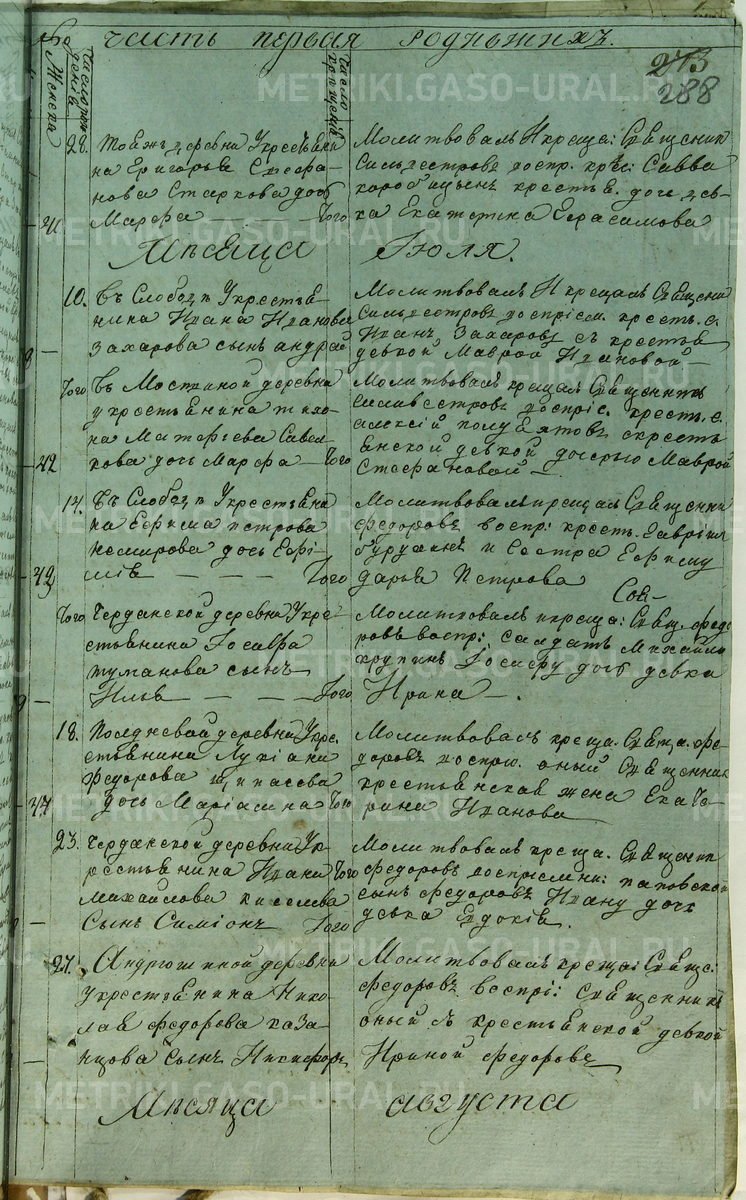 часть первая родившихъ.
273
288
Женска
число рож
денїѧ
число
крещенїѧ
28. Тоежъ деревни Укрестьѧни
на Григорьѧ Стефа
нова Старкова дочь
41 Марфа — Того
Молитвовалъ Икреща: Священник
Сильвестровъ воспр. крес: Савва
крестьѧ. дочь дев
ка Екатерина Герасимова
Месяца Июля.
10. Въ Слободѣ Укрестьѧ
нина Ивана Иванова
Захарова сынъ андрей
Молитвовалъ Икрещалъ Священни
Сильвестровъ воспрїем. кресть. с.
Иванъ Захаровъ съ крестьѧ
девкой Маврой Ивановой
Того Въ Мостиной деревни
укрестьянина тихо
на Матфїева Савел
42 кова дочь Марфа — Того
Молитвовалъ крещалъ Священникъ
силивестровъ воспрїе. кресть. с.
алексїй полуѣктовъ скресть
ѧнской девкой дочерью Маврой
Стефановой
14. Въ Слободѣ Укрестьѧни
на Ефима петрова
немирова дочь Евфи
43 мїѧ — — — Того
Молитвовалъ икрещалъ Священни
федоровъ воспр: кресть. гаврїил
и Сестра Ефиму
дарья Петрова
Того Черданской деревни Укре
стьѧнина Иосифа
туманова сынъ
Илья — — — Того
Молитвовалъ икреща: Свѧщ. федо
ровъ воспр: салдатъ Михайло
крупинъ Иосифу дочь девка
Ирина
18. Полдневой деревни Укре
стьѧнина Лукїана
федорова
44 дочь Марїамна Того
Молитвовалъ креща. Свѧща. фе
доровъ воспрїе. оный Священник
крестьѧнскаѧ жена Екате
рина Иванова
23. Черданской деревни Ук
рестьѧнина Ивана
михайлова киселева
Сынъ Симїонъ Того
Молитвовалъ креща. Священник
федоровъ воспрїемни:
сынъ федоровъ Ивану дочь
девка Евдокїѧ.
27. Андрюшиной деревни
Укрестьѧнина Нико
лаѧ федорова каза
нцова Сынъ Никифоръ
Молитвовалъ креща: Свѧще:
федоровъ воспрї: священникъ
оный съ крестьѧнской девкой
Ириной федоровой
Месяца августа